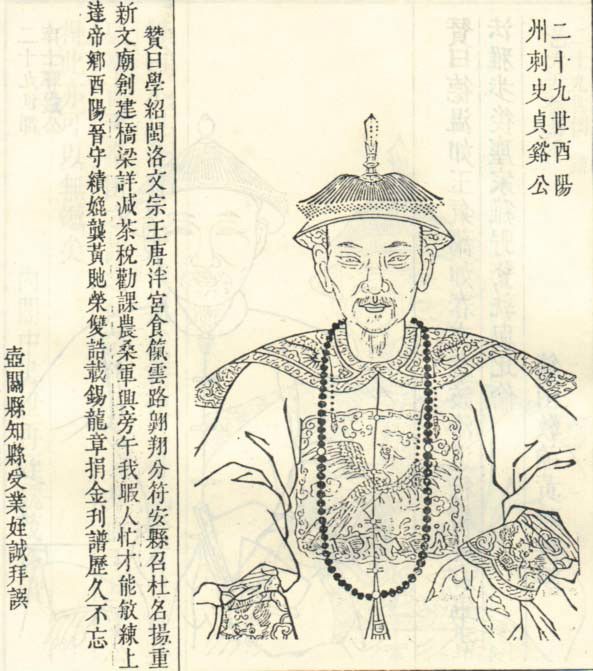 二十九世酉陽
州刺史貞谿公
贊曰學紹閩洛文宗王唐泮宮食餼雲路翺翔分符安縣召杜名揚重
新文廟創建橋梁詳減茶稅勸課農桑軍興旁午我暇人忙才能敏練上
達帝鄉酉陽晉守績媲龔黃貤榮雙誥載錫龍章捐金刊譜歷久不忘
壺關縣知縣受業姪誠拜譔